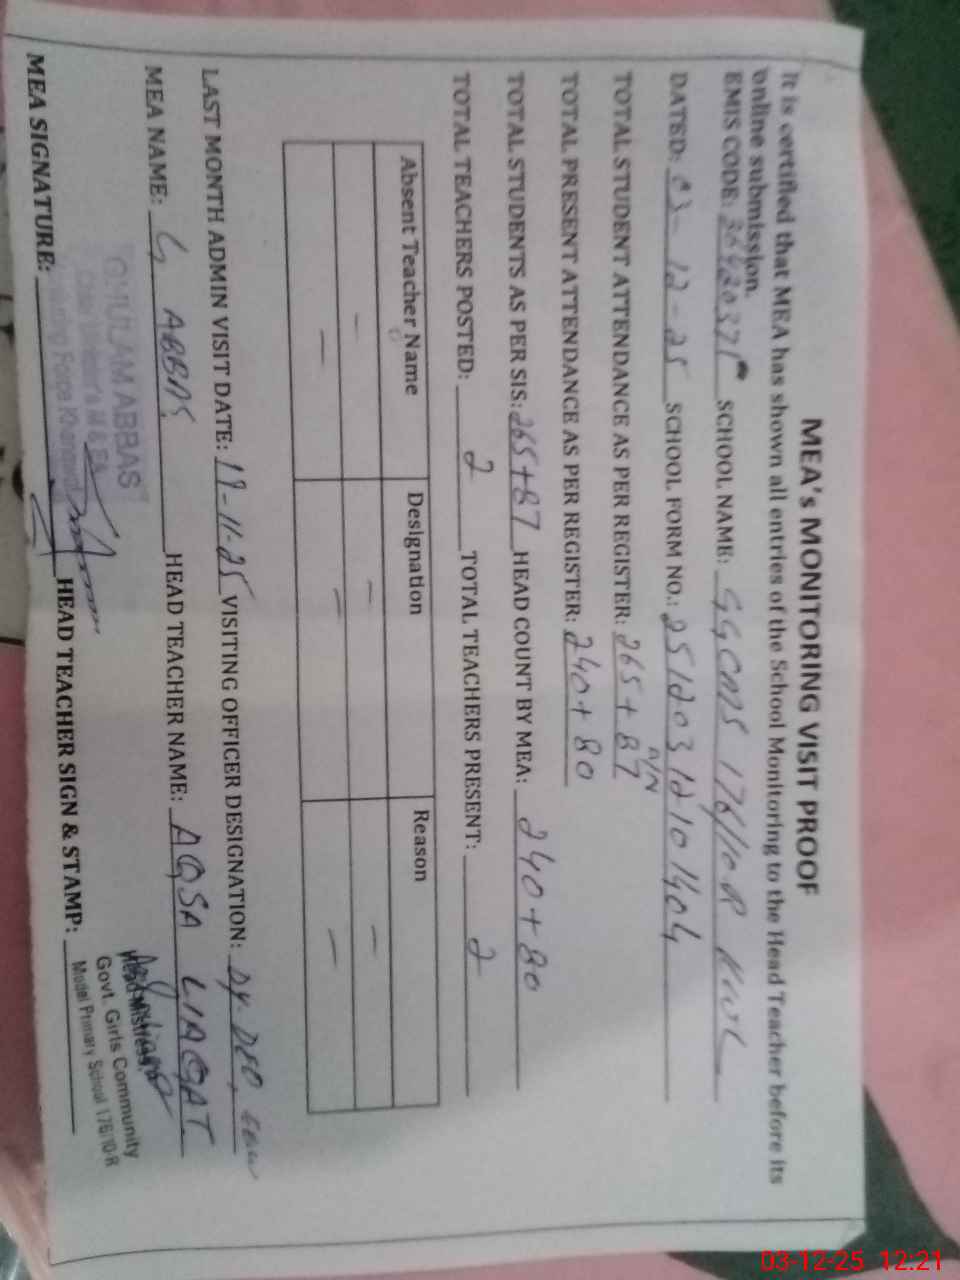 MEA's MONITORING VISIT PROOF
It is certified that MEA has shown all entries of the School Monitoring to the Head Teacher before its
online submission.
EMIS CODE: SCHOOL NAME: GGCMS 176/10-R KWL
DATED: 03-12-25 SCHOOL FORM NO.: 25120312101404
TOTAL STUDENT ATTENDANCE AS PER REGISTER: 265+87
TOTAL PRESENT ATTENDANCE AS PER REGISTER: 240+80
TOTAL STUDENTS AS PER SIS: 265+87 HEAD COUNT BY MEA: 240+80
TOTAL TEACHERS POSTED: 2 TOTAL TEACHERS PRESENT: 2
Absent Teacher Name Designation Reason
— — —
— — —
LAST MONTH ADMIN VISIT DATE: 19-11-25 VISITING OFFICER DESIGNATION: Dy. DEO,
MEA NAME: G ABBAS HEAD TEACHER NAME: AQSA LIAQAT
GHULAM ABBAS
MEA SIGNATURE: HEAD TEACHER SIGN & STAMP:
Head Mistress,
Govt. Girls Community
Model Primary School 176/10-R
03-12-25 12:21